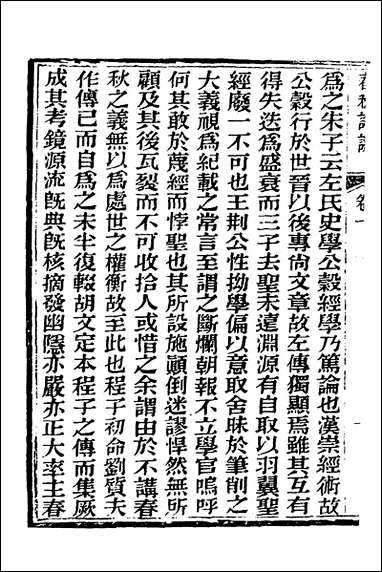 春秋評論
卷一
爲之朱子云左氏史學公穀經學乃篤論也漢崇經術故
公穀行於世晉以後專尙文章故左傳獨顯焉雖其互有
得失迭爲盛衰而三子去聖未遠淵源有自取以羽翼聖
經廢一不可也王荆公性拗學偏以意取舍昧於筆削之
大義視爲紀載之常言至謂之斷爛朝報不立學官嗚呼
何其敢於蔑經而悖聖也其所設施顚倒迷謬悍然無所
顧及其後瓦裂而不可收拾人或惜之余謂由於不講春
秋之義無以爲處世之權衡故至此也程子初命劉質夫
作傳已而自爲之未半復輟胡文定本程子之傳而集厥
成其考鏡源流旣典旣核摘發幽隱亦嚴亦正大率主春